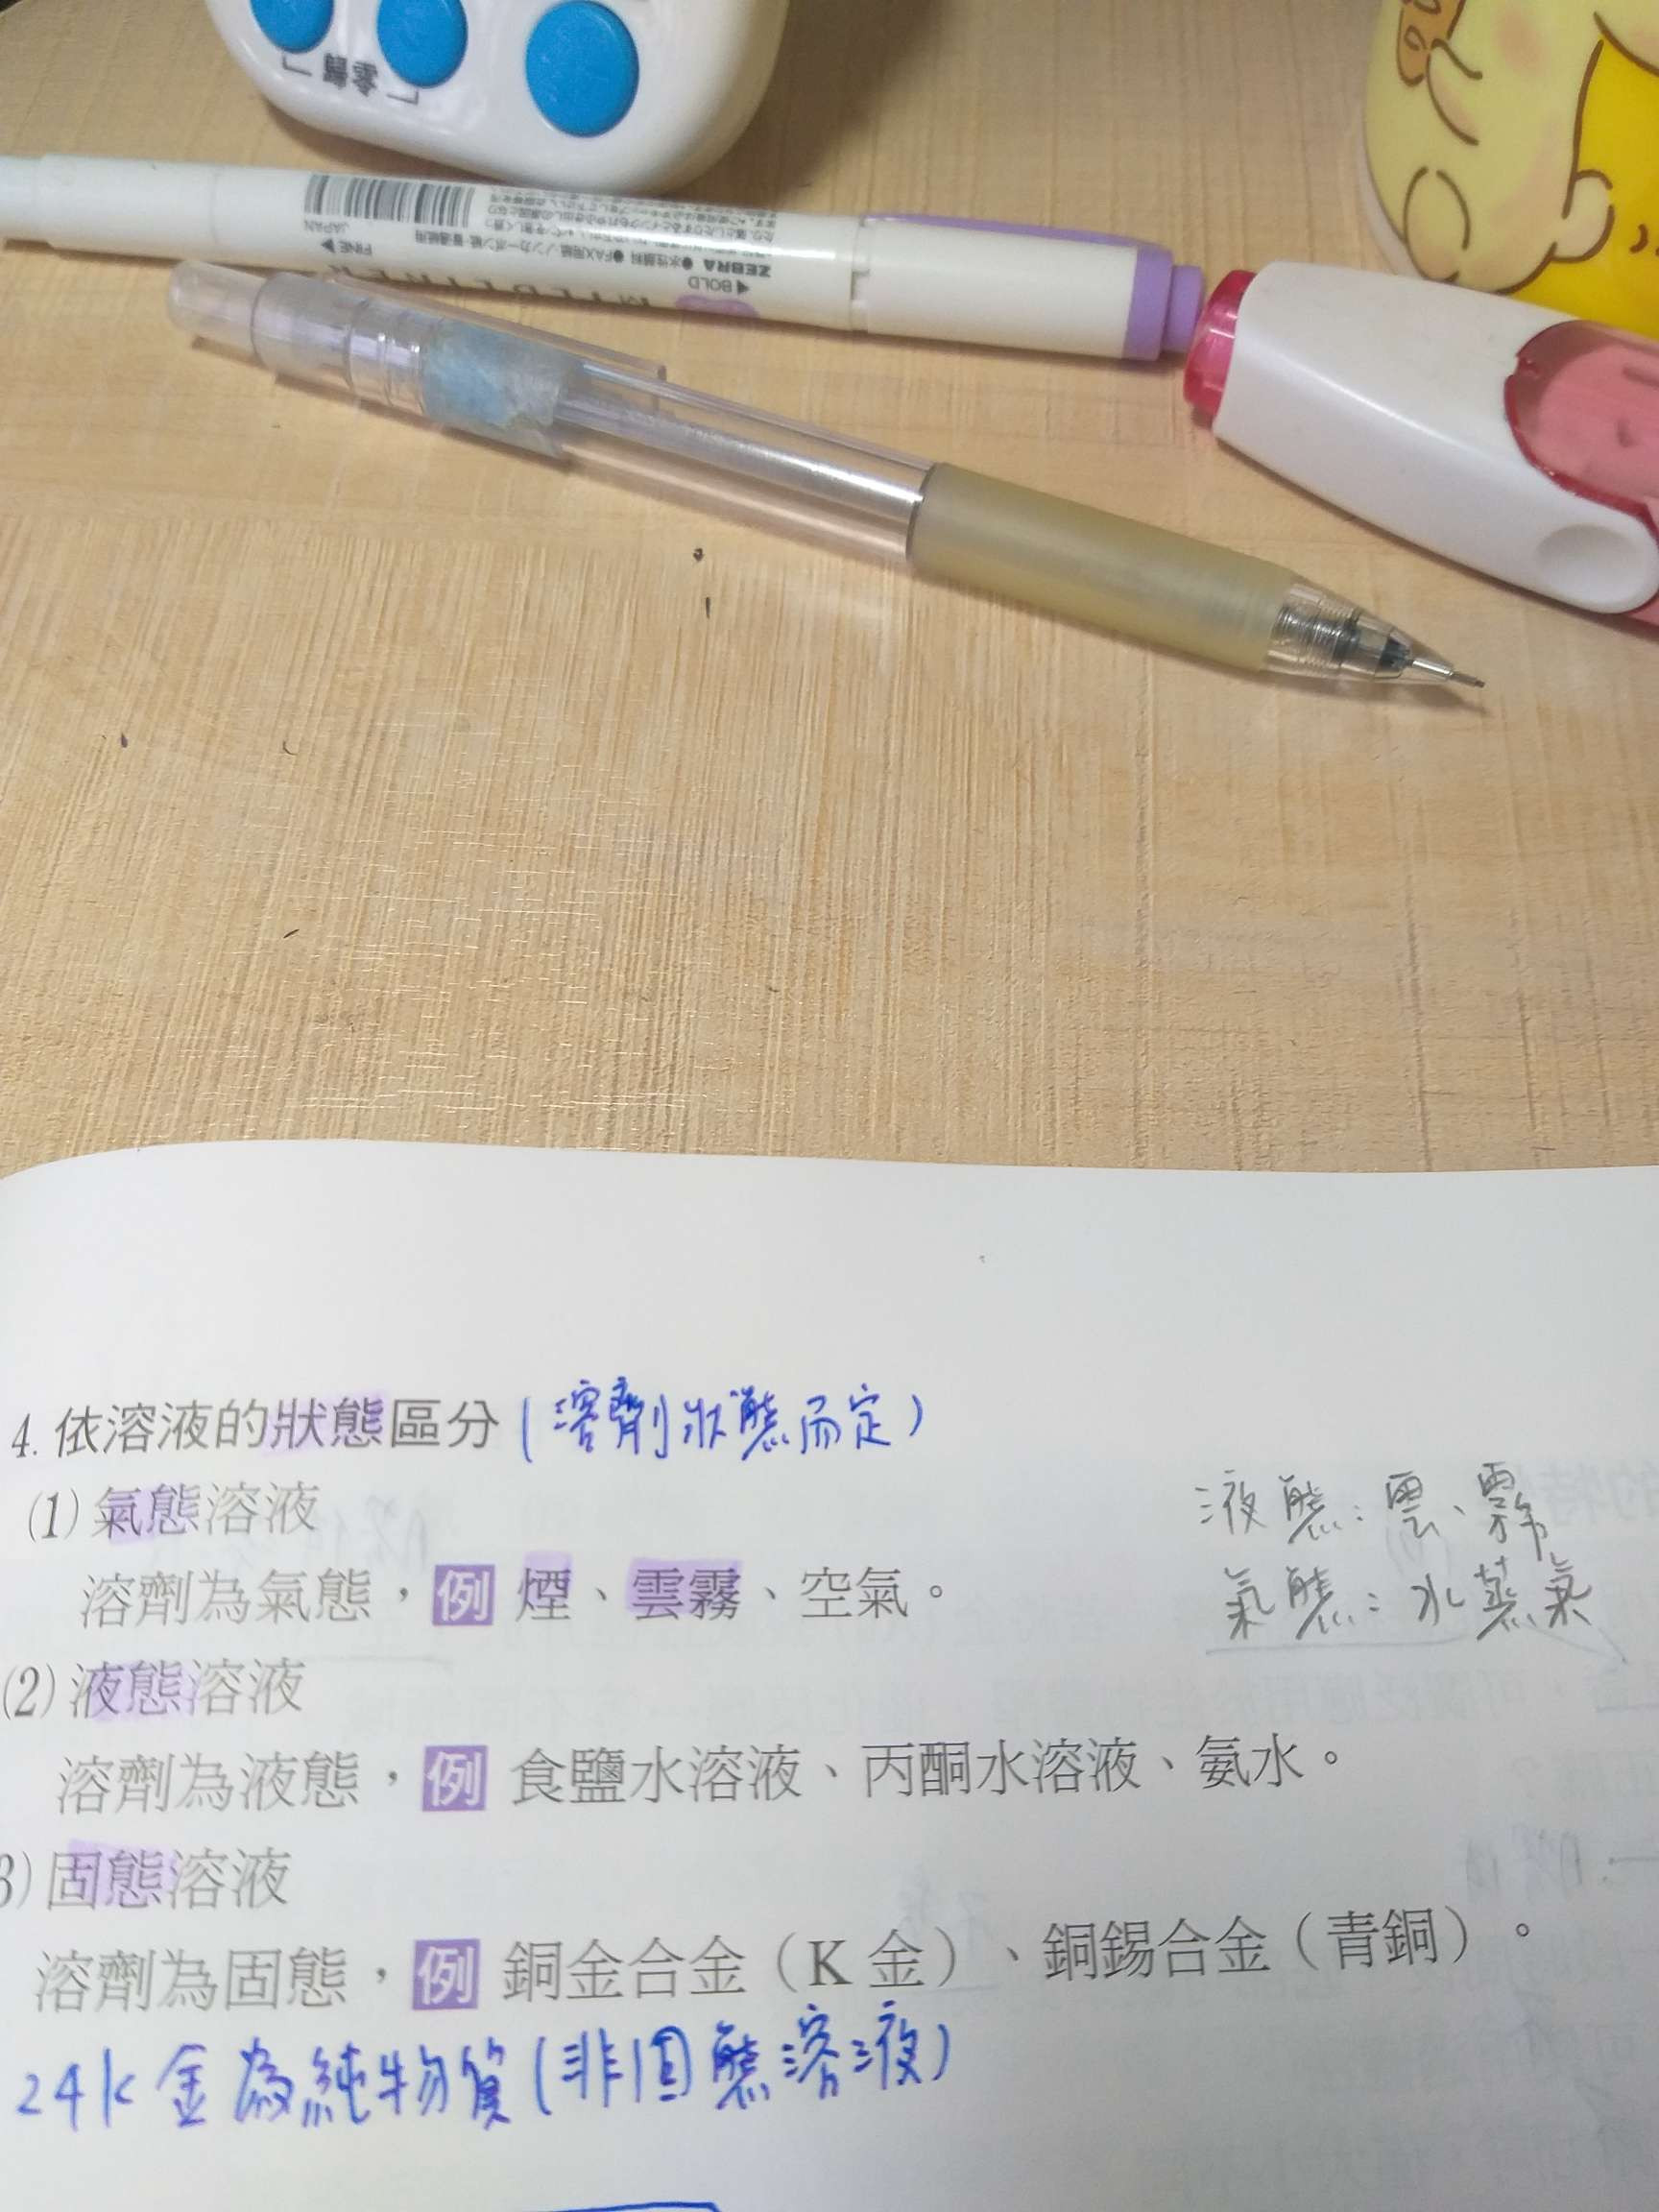 「歸零」
JAPAN
FINE
BOLD
ZEBRA ●水性顔料 ●FAX用紙・ノンカーボン紙・普通紙用
4. 依溶液的狀態區分(溶劑狀態而定)
(1) 氣態溶液
液態:雲、霧
溶劑為氣態,例 煙、雲霧、空氣。
氣態:水蒸氣
(2) 液態溶液
溶劑為液態,例 食鹽水溶液、丙酮水溶液、氨水。
3) 固態溶液
溶劑為固態,例 銅金合金(K 金)、銅錫合金(青銅)。
24k 金為純物質(非固態溶液)